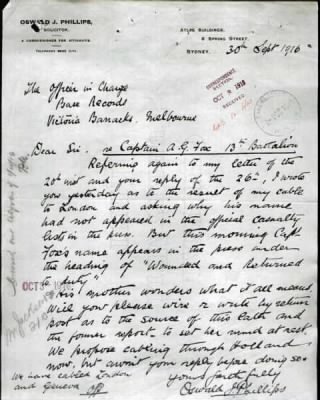 OSWALD J. PHILLIPS,
SOLICITOR.
A COMMISSIONER FOR AFFIDAVITS.
ATLAS BUILDINGS,
8 SPRING STREET,
SYDNEY, 30th Sept 1916
The Officer in Charge
Base Records
Victoria Barracks, Melbourne
OCT 1916
RECEIVED
Dear Sir. re Captain A. G. Fox 13th Battalion
Referring again to my letter of the
20th inst and your reply of the 26th, I wrote
you yesterday as to the result of my cable
to London and asking why his name
had not appeared in the official casualty
lists in the press. But this morning Capt
Fox's name appears in the press under
the heading of "Wounded and Returned
to duty"
His mother wonders what it all means.
Will you please wire or write by return
post as to the source of this last and
the former report, to set her mind at rest.
We propose cabling through Holland
now, but await your reply before doing so.
Yours faithfully
Oswald J Phillips
We have cabled London
and Geneva
OCT 3